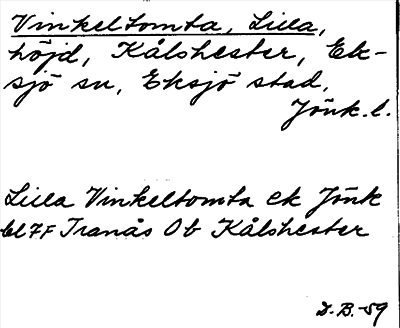 Vinkeltomta, Lilla,
höjd, Kålshester, Ek-
sjö sn, Eksjö stad,
Jönk.l.
Lilla Vinkeltomta ek Jönk
bl 7F Tranås Ob Kålshester
D.B.-59